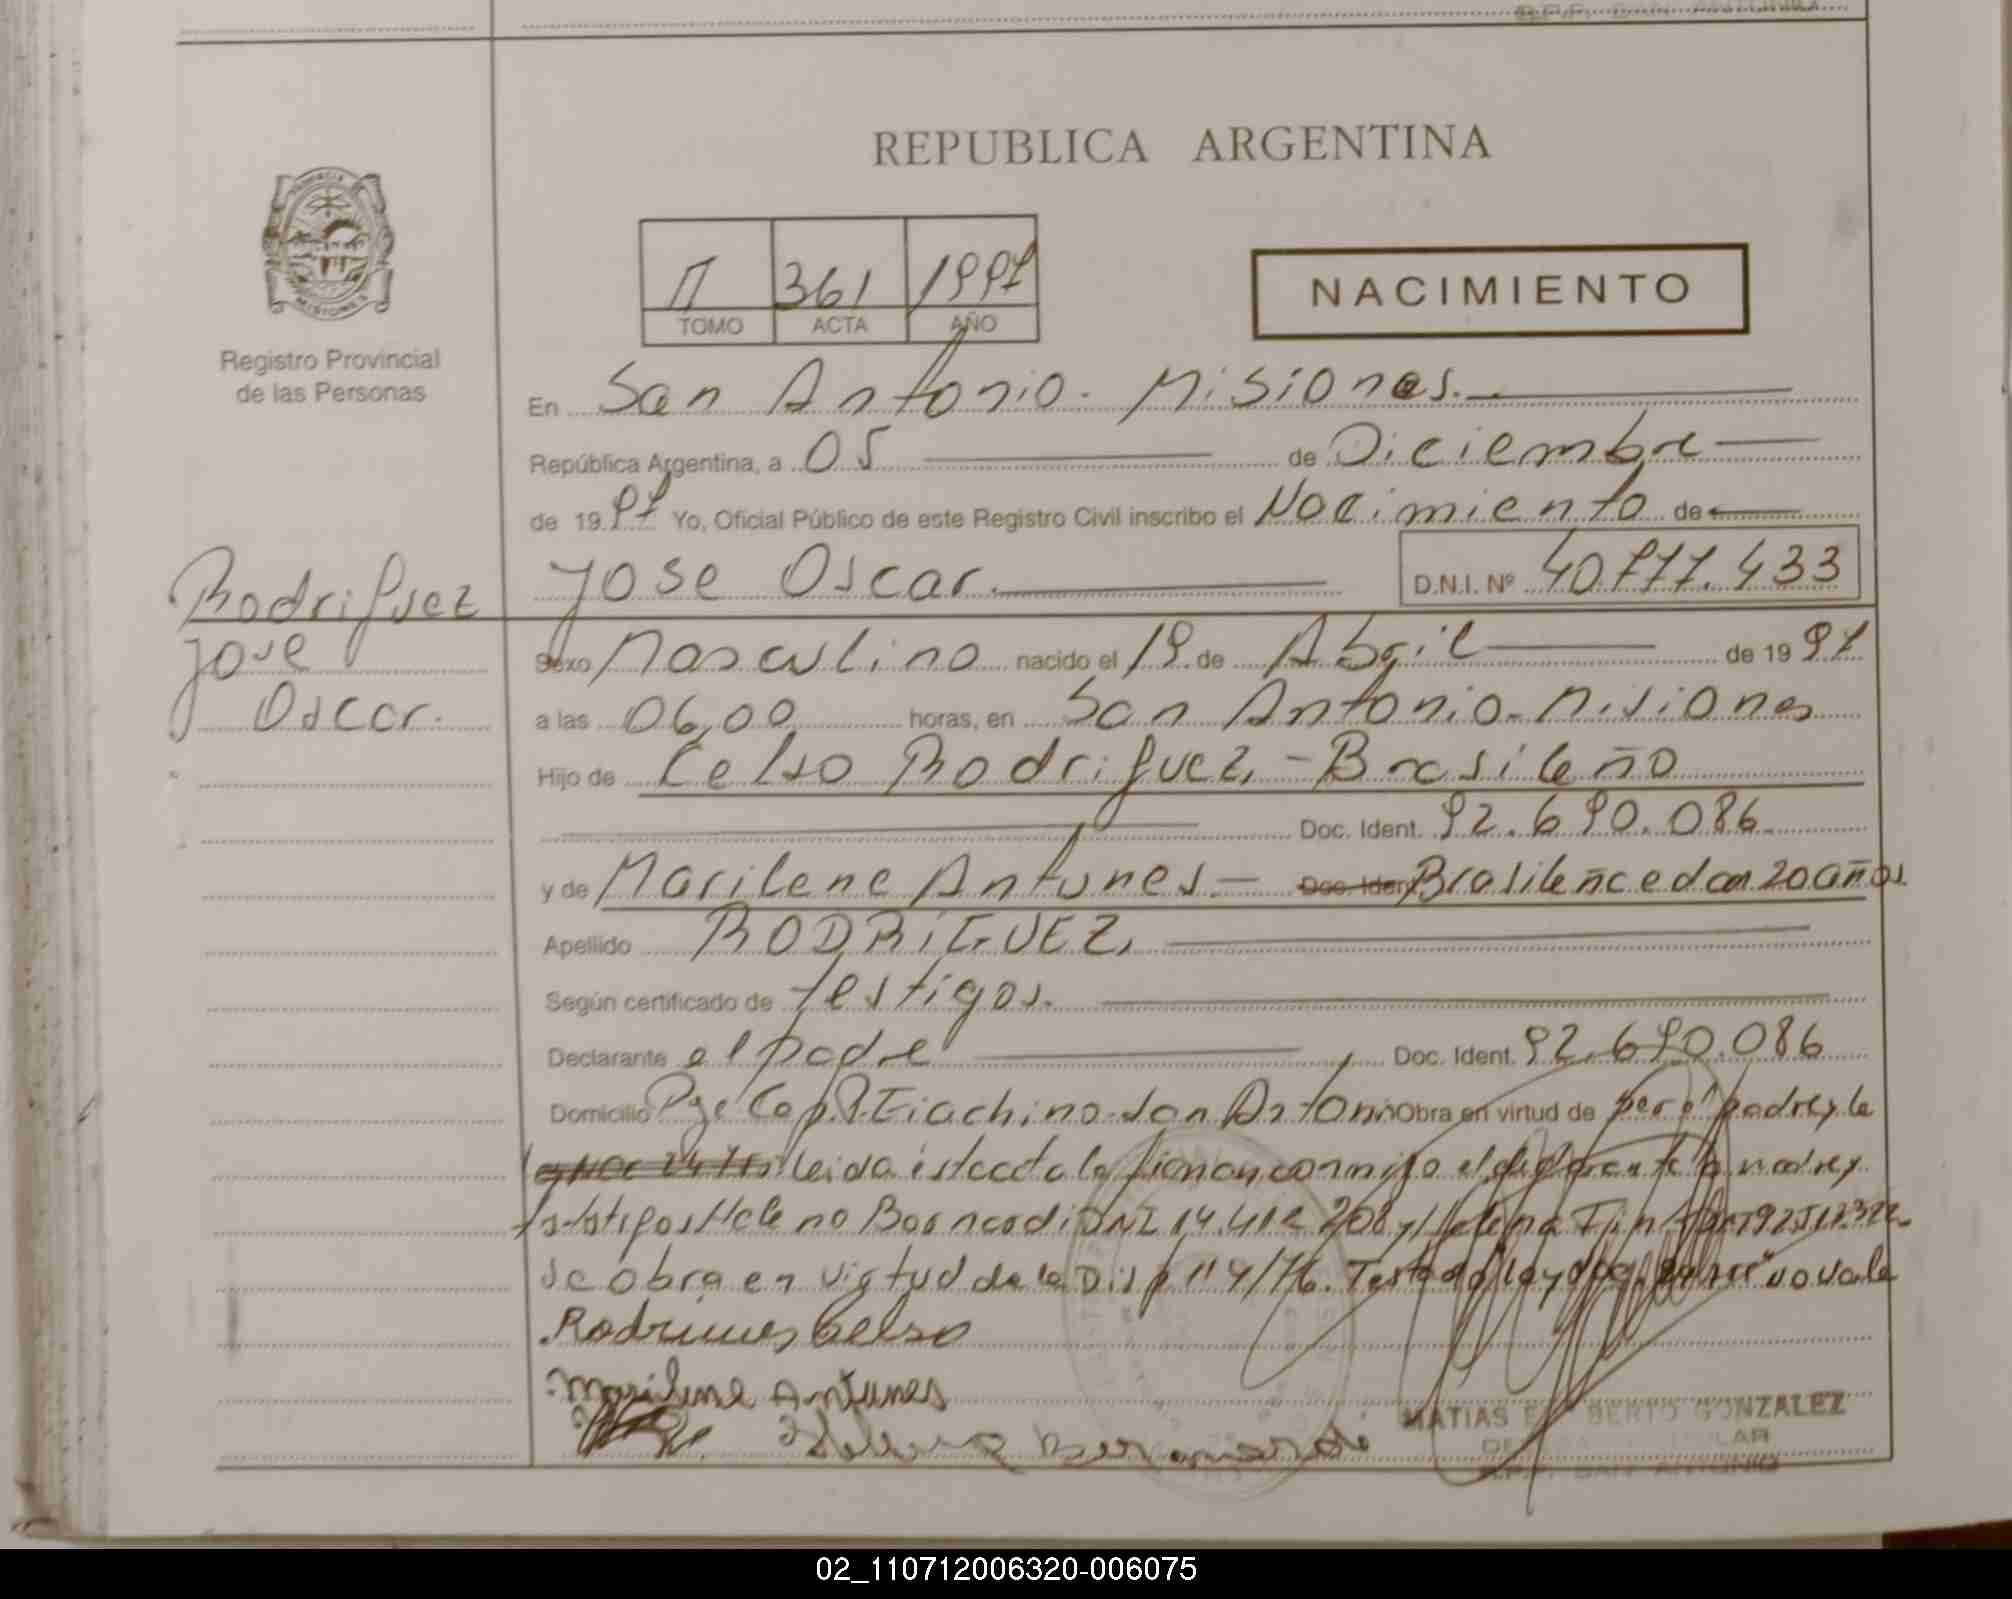 REPUBLICA ARGENTINA
Registro Provincial
de las Personas
II 361 1997
TOMO ACTA AÑO
NACIMIENTO
En San Antonio - Misiones.
República Argentina, a 05 de Diciembre
de 1997 Yo, Oficial Público de este Registro Civil inscribo el Nacimiento de
Jose Oscar. D.N.I. Nº 40.777.433
Rodriguez
Jose
Oscar.
Sexo Masculino nacido el 19 de Abril de 1997
a las 06,00 horas, en San Antonio - Misiones
Hijo de Celso Rodriguez, - Brasileño
Doc. Ident. 92.690.086
y de Marilene Antunes. - Doc. Iden Brasileña ced con 20 años.
Apellido RODRIGUEZ,
Según certificado de testigos.
Declarante el padre Doc. Ident. 92.690.086
Domicilio Pje Cap. P. Giachino - San Antonio Obra en virtud de ser el padre y la
Leida ésta acta la firman conmigo el declarante la madre y
testigos DNI 14.412.208 y Helena
se obra en virtud de la Disp 114/76. no vale
Celso
Marilene Antunes
MATIAS E BERTO GONZALEZ
SAN ANTONIO
02_110712006320-006075